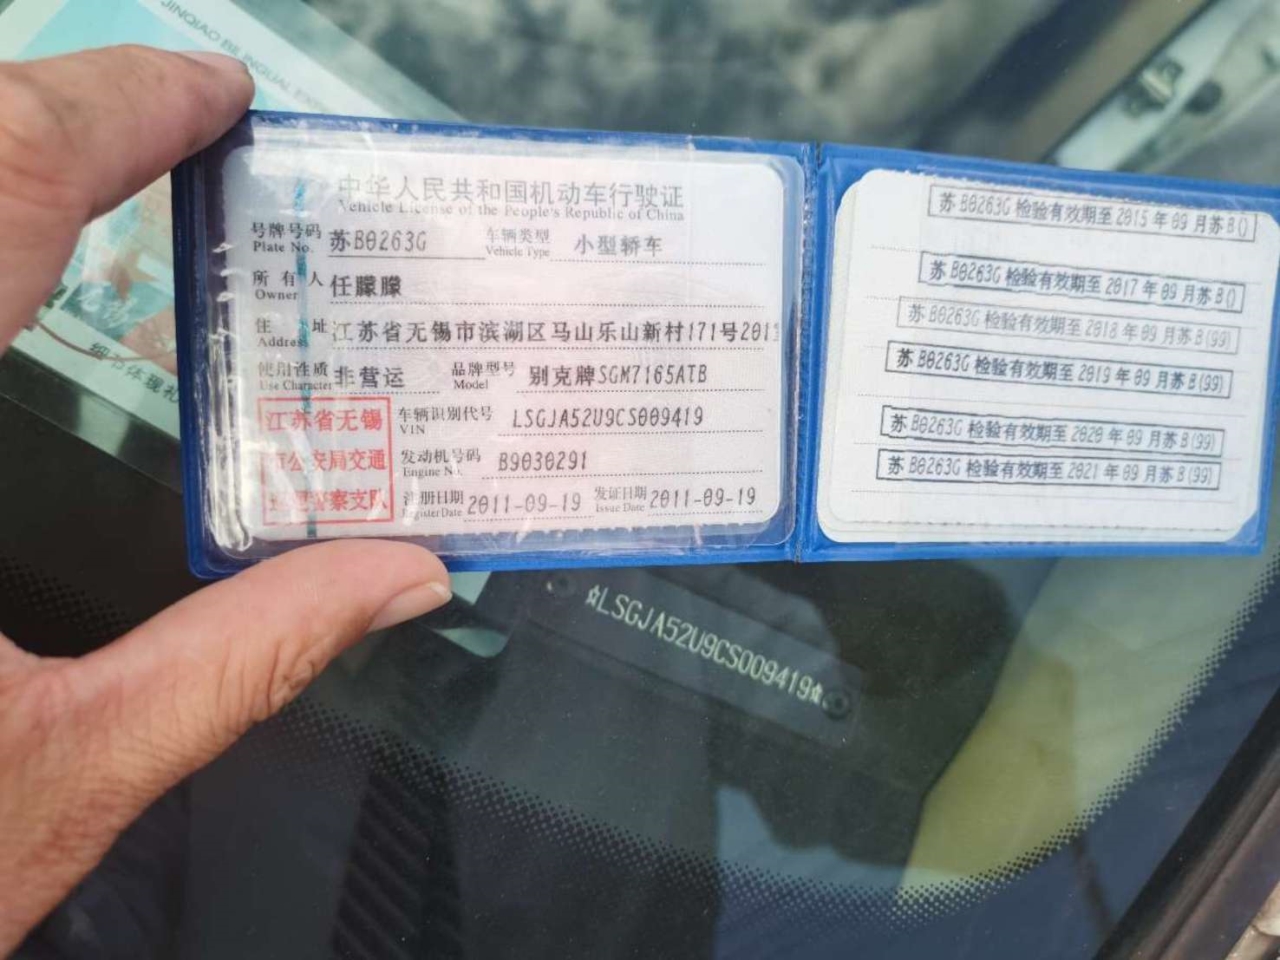 JINQIAO BILINGUAL
中华人民共和国机动车行驶证
Vehicle License of the People's Republic of China
号牌号码 苏B0263G 车辆类型 小型轿车
Plate No. Vehicle Type
所有人 任朦朦
Owner
住址 江苏省无锡市滨湖区马山乐山新村171号201
Address
使用性质 非营运 品牌型号 别克牌SGM7165ATB
Use Character Model
车辆识别代号 LSGJA52U9CS009419
VIN
发动机号码 B9030291
Engine No.
注册日期 2011-09-19 发证日期 2011-09-19
Register Date Issue Date
江苏省无锡
市公安局交通
巡逻警察支队
苏B0263G检验有效期至2015年09月苏B()
苏B0263G检验有效期至2017年09月苏B()
苏B0263G检验有效期至2018年09月苏B(99)
苏B0263G检验有效期至2019年09月苏B(99)
苏B0263G检验有效期至2020年09月苏B(99)
苏B0263G检验有效期至2021年09月苏B(99)
细节体现礼
☆LSGJA52U9CS009419☆